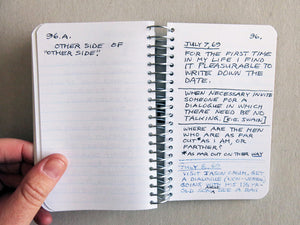 96.A.
OTHER SIDE OF
"OTHER SIDE".
96.
JULY 7, 69
FOR THE FIRST TIME
IN MY LIFE I FIND
IT PLEASURABLE TO
WRITE DOWN THE
DATE.
WHEN NECESSARY INVITE
SOMEONE FOR A
DIALOGUE IN WHICH
THERE NEED BE NO
TALKING.
WHERE ARE THE MEN
WHO ARE AS FAR
OUT* AS I AM, OR
FARTHER?
*AS FAR OUT ON THEIR WAY
JULY 8, 69
VISIT JASON CRUM, GET
A DIALOGUE (NON-VERBAL)
GOING HIS 1½ YR
OLD SON. A DAY